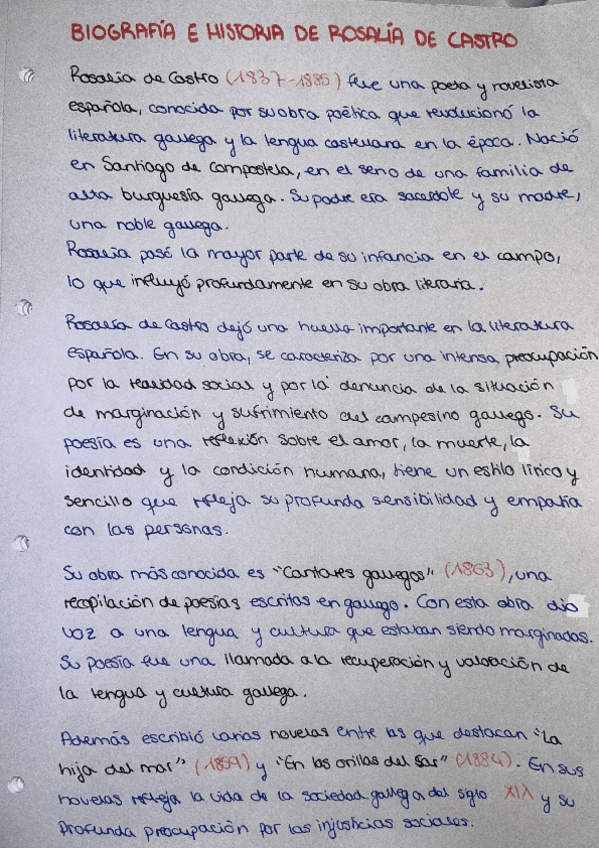 BIOGRAFÍA E HISTORIA DE ROSALÍA DE CASTRO
Rosalía de Castro (1837-1885) fue una poeta y novelista
española, conocida por su obra poética que revolucionó la
literatura gallega y la lengua castellana en la época. Nació
en Santiago de Compostela, en el seno de una familia de
alta burguesía gallega. Su padre era sacerdote y su madre,
una noble gallega.
Rosalía pasó la mayor parte de su infancia en el campo,
lo que influyó profundamente en su obra literaria.
Rosalía de Castro dejó una huella importante en la literatura
española. En su obra, se caracteriza por una intensa preocupación
por la realidad social y por la denuncia de la situación
de marginación y sufrimiento del campesino gallego. Su
poesía es una reflexión sobre el amor, la muerte, la
identidad y la condición humana, tiene un estilo lírico y
sencillo que refleja su profunda sensibilidad y empatía
con las personas.
Su obra más conocida es "Cantares gallegos" (1863), una
recopilación de poesías escritas en gallego. Con esta obra dio
voz a una lengua y cultura que estaban siendo marginadas.
Su poesía fue una llamada a la recuperación y valoración de
la lengua y cultura gallega.
Además escribió varias novelas entre las que destacan "La
hija del mar" (1859) y "En las orillas del Sar" (1884). En sus
novelas refleja la vida de la sociedad gallega del siglo XIX y su
profunda preocupación por las injusticias sociales.